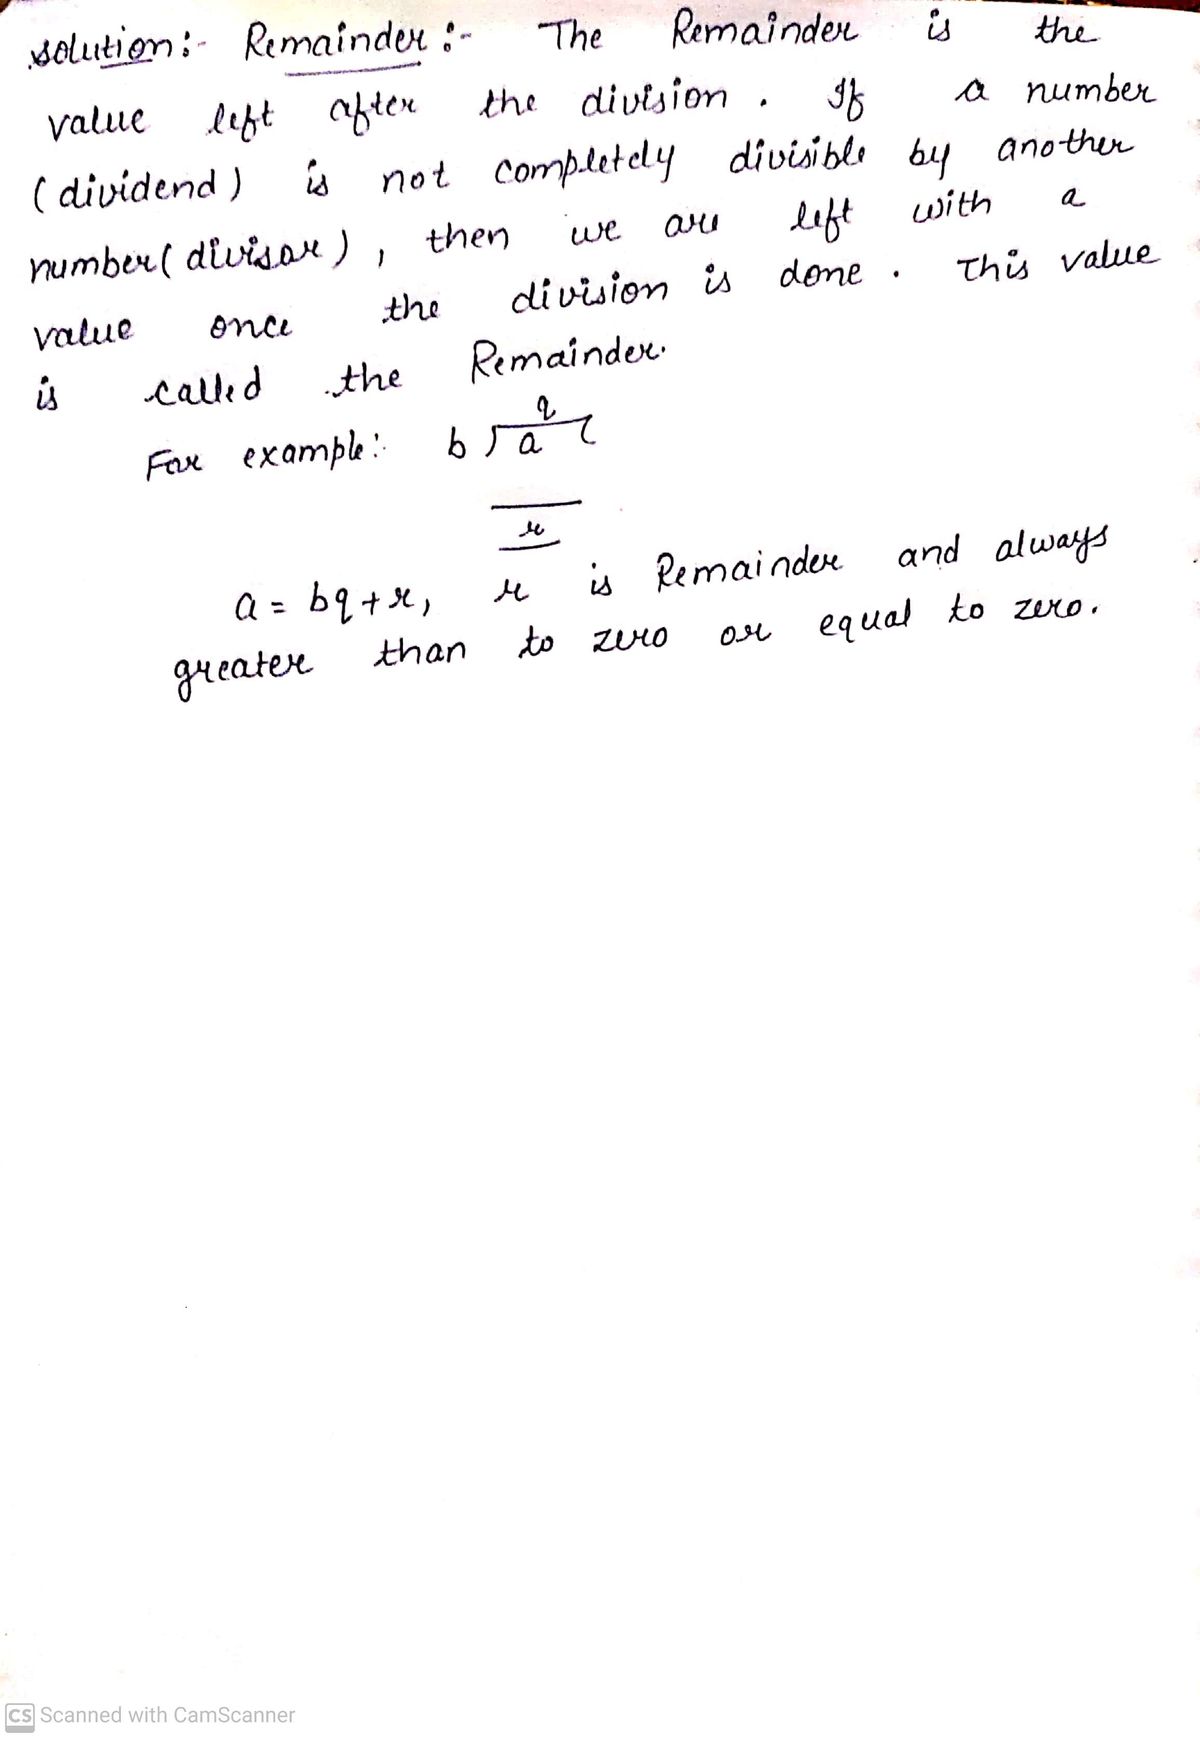 solution:- Remainder :- The Remainder is the
value left after the division. If a number
(dividend) is not completely divisible by another
number(divisor), then we are left with a
value once the division is done. This value
is called the Remainder.
For example: q
b a
r
a = bq+r, r is Remainder and always
greater than to zero or equal to zero.
CS Scanned with CamScanner